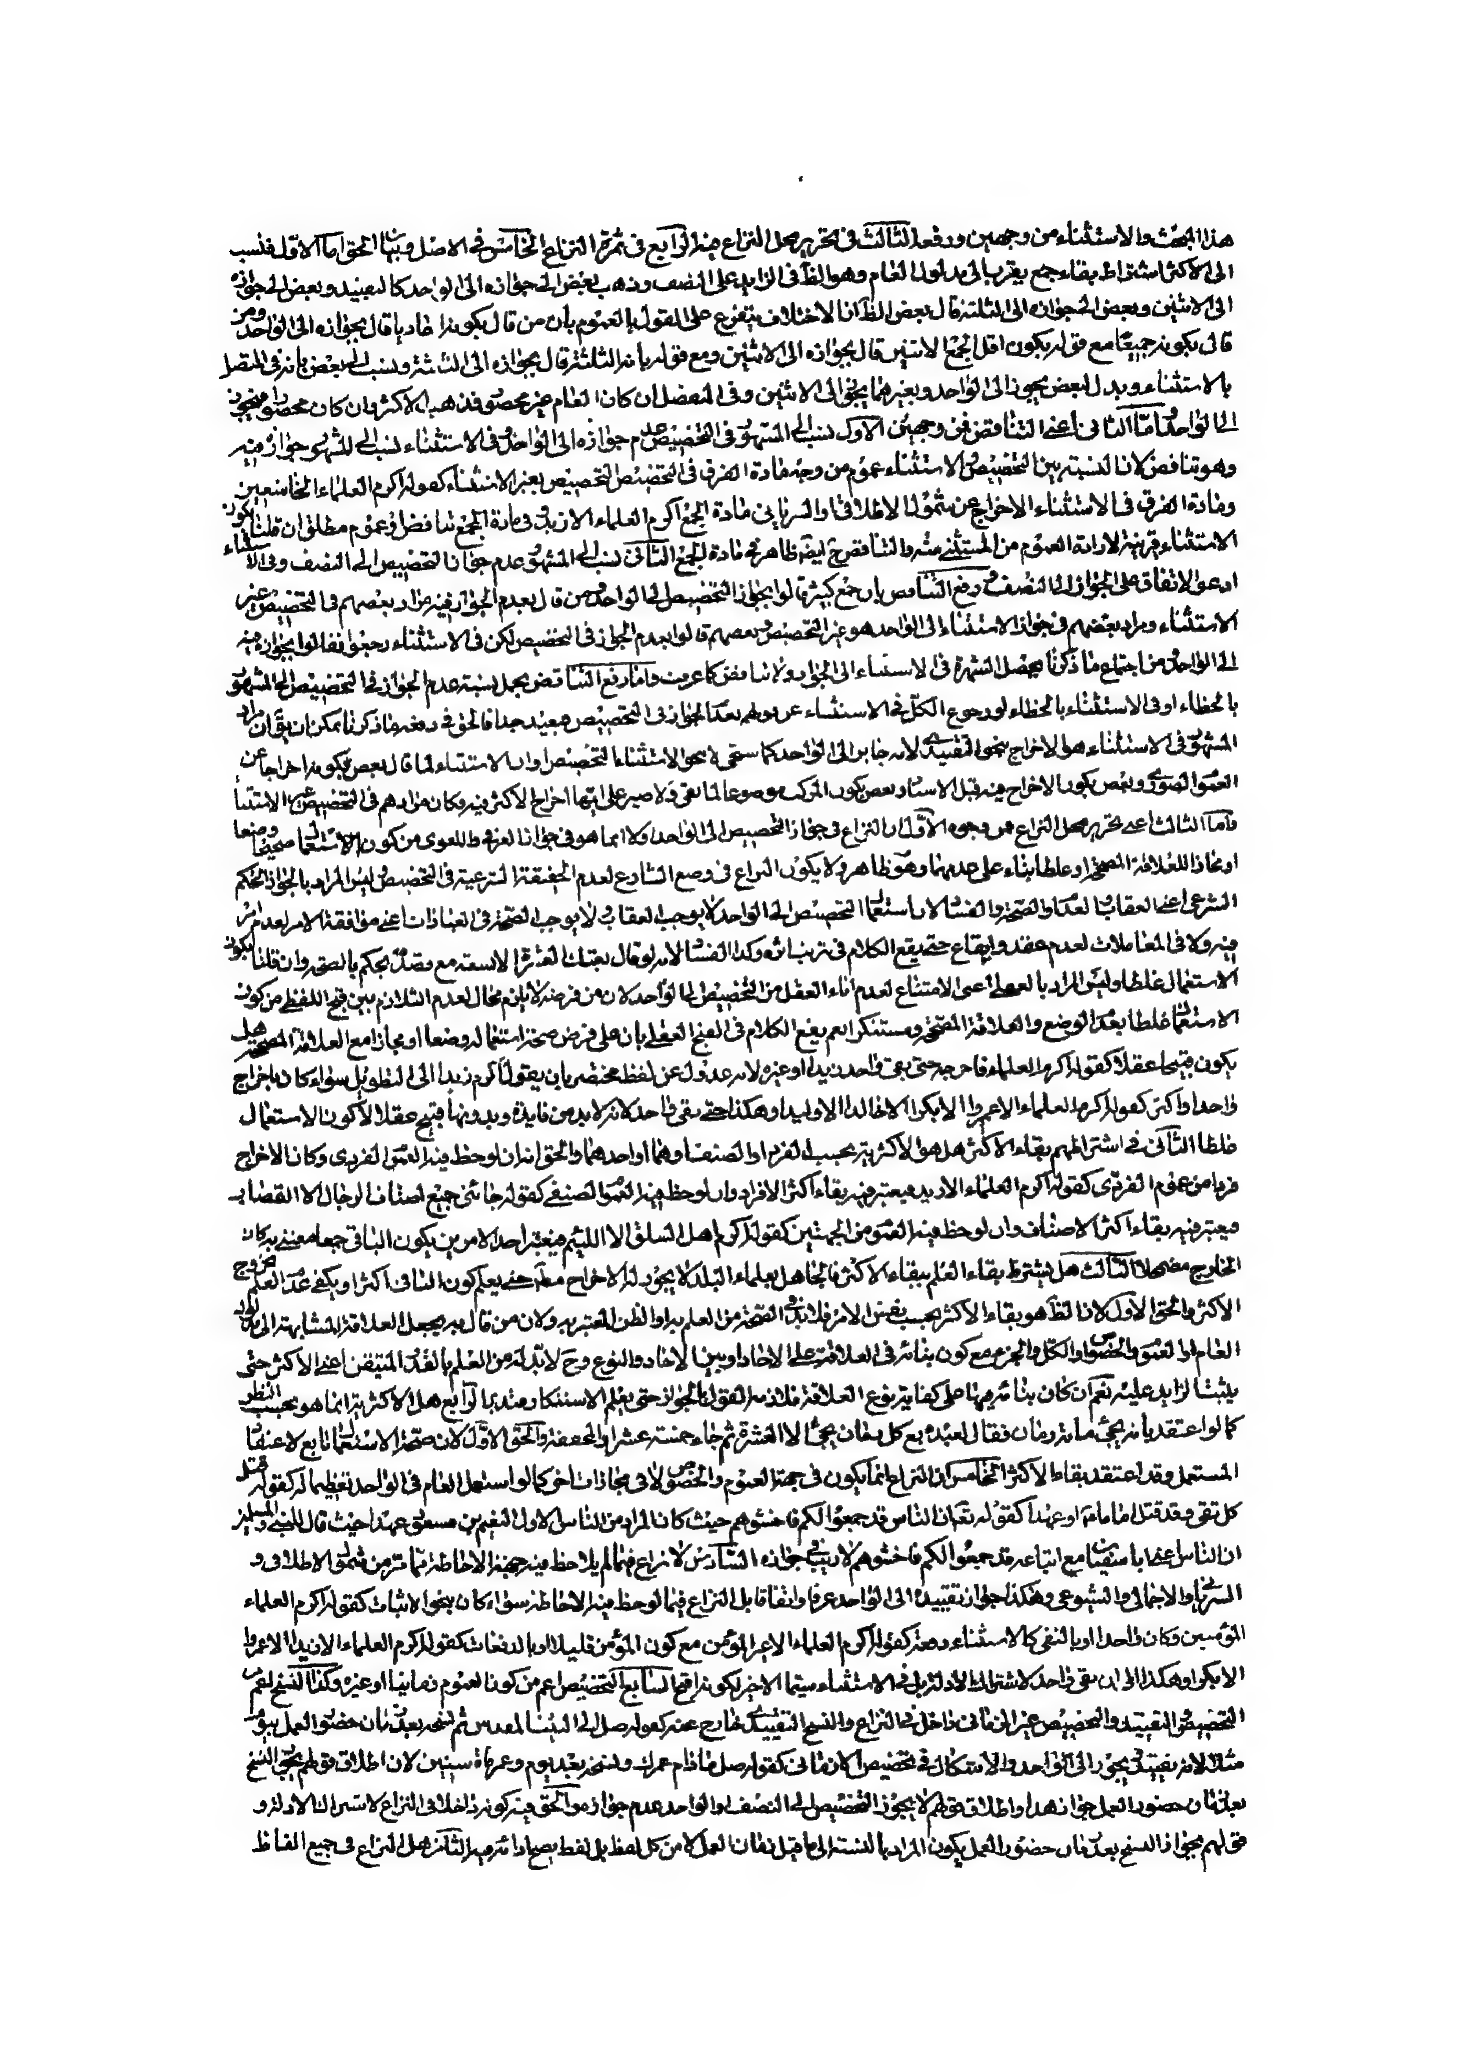 هذا المبحث والاستثناء من وجهين ودفعه الثالث فى تحرير محل النزاع فيه الرابع فى ثمرة النزاع الخامس فى الاصل وبيان الحق اما الاول فنسب
الى الاكثر اشتراط بقاء جمع يقرب الى مدلول العام وهو الظ فى الزايد على النصف وذهب بعض الى جوازه الى الواحد كالتعبيد وبعض الى جوازه
الى الاثنين وبعض الى جوازه الى الثلثة قال بعض الظ ان الاختلاف يتفرع على القول بالعموم بان من قال بكونه افادة قال بجوازه الى الواحد ومن
قال بكونه جميعا مع قوله بكون اقل الجمع الاثنين قال بجوازه الى الاثنين ومع قوله بانه الثلثة قال بجوازه الى الثلثة ونسب الى بعض بانه فى المتصل
بالاستثناء وبدل البعض يجوز الى الواحد وبغيرهما يجوز الى الاثنين وفى المنفصل ان كان العام غير محصور فذهب الاكثر وان كان محصورا فيجوز
الى الواحد واما الثانى اعنى التناقض فمن وجهين الاول نسب الى المشهور فى التخصيص عدم جوازه الى الواحد وفى الاستثناء نسب الى المشهور جوازه فيه
وهو تناقض لان النسبة بين التخصيص والاستثناء عموم من وجه فمادة الفرق فى التخصيص التخصيص بغير الاستثناء كقوله اكرم العلماء الخاشعين
ومادة الفرق فى الاستثناء الاخراج عن شمول الاطلاقى والسريانى ومادة الجمع اكرم العلماء الا زيدا وفى مادة الجمع تناقض لزعموم مطلق ان قلنا بكون
الاستثناء قرينة لارادة العموم من المستثنى منه والتناقض ح ايضا ظاهر فى مادة الجمع الثانى نسب الى المشهور عدم جواز التخصيص الى النصف وفى الاستثناء
ادعو الاتفاق على الجواز الى النصف ودفع التناقض بان جمع كثير قالوا بجواز التخصيص الى الواحد ومن قال بعدم الجواز فيه مراد بعضهم فى التخصيص غير
الاستثناء ومراد بعضهم فى جواز الاستثناء الى الواحد هو غير التخصيص وبعضهم قالوا بعدم الجواز فى التخصيص لكن فى الاستثناء رجعوا فقالوا بجوازه فيه
الى الواحد فمن اجتماع ما ذكرنا يحصل الشهرة فى الاستثناء الى الجواز ولا تناقض كما عرفت واما رفع التناقض بحمل نسبة عدم الجواز فى التخصيص الى المشهور
بالخطاء او فى الاستثناء بالخطاء او رجوع الكل فى الاستثناء عن قولهم بعدم الجواز فى التخصيص فبعيد جدا فالحق فى دفعه ما ذكرنا يمكن ان يق ان مراد
المشهور فى الاستثناء هو الاخراج بنحو التقييد لانه جايز الى الواحد كما ستعرف لا بنحو الاستثناء التخصيص او ان الاستثناء لما قال بعض بكونه اخراجا عن
العموم الصورى وبعض بكون الاخراج فيه قبل الاسناد وبعض بكون المركب موضوعا لما بقى فلا ضير على ايها اخراج الاكثر فيه وكان مرادهم فى التخصيص غير الاستثناء
واما الثالث اعنى تحرير محل النزاع فمن وجوه الاول ان النزاع فى جواز التخصيص الى الواحد ولا انما هو فى جواز العرفى واللغوى من كون الاستعمال صحيحا وضعا
او مجازا للعلاقة المصححة او غلطا بناء على عدمهما وهو ظاهر ولا يكون النزاع فى وضع الشارع لعدم الحقيقة الشرعية فى التخصيص وليس المراد بالجواز الحكم
الشرعى اعنى العقاب لعدم الصحة والفساد لان استعمال التخصيص الى الواحد لا يوجب العقاب ولا يوجب الصحة فى العبادات اعنى موافقة الامر لعدم امر
فيه ولا فى المعاملات لعدم عقد وايقاع حتى يقع الكلام فى ترتب اثره وكذا الفساد لانه لو قال بعتك العشرة الا تسعة مع قصد يحكم بالصحة وان قلنا بكون
الاستعمال غلطا وليس المراد بالعقلى اعنى الامتناع لعدم اباء العقل من التخصيص الى الواحد لان من فرضه لا يلزم محال لعدم التلازم بين قبح اللفظ من كون
الاستعمال غلطا بعد الوضع والعلاقة المصححة ومستنكرا نعم يقع الكلام فى القبح العقلى بان على فرض صحة استعماله وضعا او مجازا مع العلاقة المصححة هل
يكون قبيحا عقلا كقوله اكرم العلماء فاخرجه حتى بقى واحد زيدا او غيره لانه عدول عن لفظ مختصر بان يقول اكرم زيدا الى التطويل سواء كان باخراج
واحدا واكثر كقوله اكرم العلماء الا عمروا الا بكرا الا خالدا الا وليدا وهكذا حتى بقى واحد لانه لابد من فايدة وبدونها قبيح عقلا لا كون الاستعمال
غلطا الثانى فى اشتراطهم بقاء الاكثر هل هو الاكثرية بحسب الفرد او الصنف او هما او احدهما والحق انه ان لوحظ فيه العموم الفردى وكان الاخراج
فردا من عموم الفردى كقوله اكرم العلماء الا زيد فيعتبر فيه بقاء اكثر الافراد وان لوحظ فيه العموم الصنفى كقوله جائنى جميع اصناف الرجال الا القصاب
فيعتبر فيه بقاء اكثر الاصناف وان لوحظ فيه العموم من الجهتين كقوله اكرم اهل السلق الا اللئيم فيعتبر احد الامرين يكون الباقى جمعا معتنى به كان
الخارج مضمحلا الثالث هل يشترط بقاء العلم ببقاء الاكثر فالجاهل بعلماء البلد لا يجوز له الاخراج مط حتى يعلم كون الباقى اكثرا ويكفى عدم العلم بخروج
الاكثر والحق الاول لان الظ هو بقاء الاكثر بحسب نفس الامر فلابد فى الصحة من العلم به او الظن المعتبر به ولان من قال به يجعل العلاقة المشابهة الى مدلول
العام او العموم والخصوص او الكل والجزء مع كون بنائه فى العلاقة على الاحاد او بين الاحاد والنوع وح لابد له من العلم بالقدر المتيقن اعنى الاكثر حتى
يثبت الزايد عليه نعم ان كان بنائه فيها على كفاية نوع العلاقة فلازمه القول بالجواز حتى يعلم الاستنكار فتدبر الرابع هل الاكثرية انما هو بحسب النظر
كما لو اعتقد بانه يجيئ مائة رمان فقال لعبده بع كل رمان يجيئ الا العشرة ثم جاء خمسة عشر او الحقيقة والحق الاول لان صحة الاستعمال تابع لاعتقاد
المستعمل وقد اعتقد بقاء الاكثر الخامس ان النزاع انما يكون فى جهة العموم والخصوص لا فى مجازات اخر كما لو استعمل العام فى الواحد تعظيما له كقوله قتل
كل تقى وقد قتل اماما او عهدا كقوله تعالى ان الناس قد جمعوا لكم فاخشوهم حيث كان المراد من الناس الاول النعيم بن مسعود عهدا حيث قال للنبى والمسلمين
ان الناس اعنى ابا سفيان مع اتباعه قد جمعوا لكم فاخشوهم لا ريب فى جوازه السادس لا نزاع فيما لم يلاحظ فيه جهة الاحاطة مما مر من شمول الاطلاقى و
السريانى والاجمالى والشيوعى وهكذا جواز تقييده الى الواحد عرفا واتفاقا بل النزاع فيما لوحظ فيه الاحاطة سواء كان بنحو الاثبات كقوله اكرم العلماء
المؤمنين وكان واحدا او بالنفى كالاستثناء دفعة كقوله اكرم العلماء الا غير المؤمن مع كون المؤمن قليلا او بالدفعات كقوله اكرم العلماء الا زيدا الا عمروا
الا بكرا وهكذا الى ان بقى واحد لاشتراك الادلة بل فى الاستثناء سيما الاخير لكونه اقبح السابع التخصيص اعم من كون العموم زمانيا او غيره وكذا النسخ لعم من
التخصيص والتقييد والتخصيص غير الزمانى داخل فى النزاع والنسخ التقييدى خارج عنه كقوله صل الى البيت المقدس ثم نسخه بعد زمان حضور العمل بيوم
مثلا لانه تقييد يجوز الى الواحد والاشكال فى تخصيص الازمانى كقوله صل ما دام عمرك ونسخه بعد يوم وعمره مائة سنين لان اطلاق قولهم يجوز النسخ
بعد زمان حضور العمل جواز هذا واطلاق قولهم لا يجوز التخصيص الى النصف او الواحد عدم جوازه والحق فيه كونه داخلا فى النزاع لاشتراك الادلة و
قولهم بجواز النسخ بعد زمان حضور العمل يكون المراد بالنسبة الى ما قبل زمان العمل لا من كل لفظ بل لفظ يصح ارادته فيه الثامن هل النزاع فى جميع الفاظ